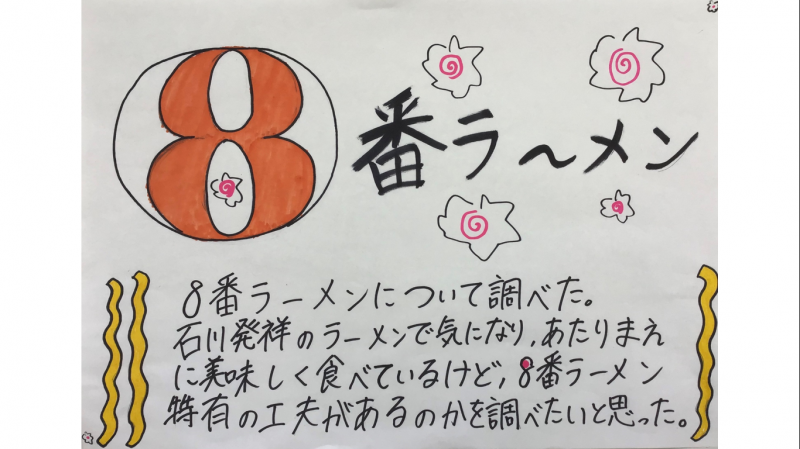 8番ラ～メン
8番ラーメンについて調べた。
石川発祥のラーメンで気になり、あたりまえ
に美味しく食べているけど、8番ラーメン
特有の工夫があるのかを調べたいと思った。